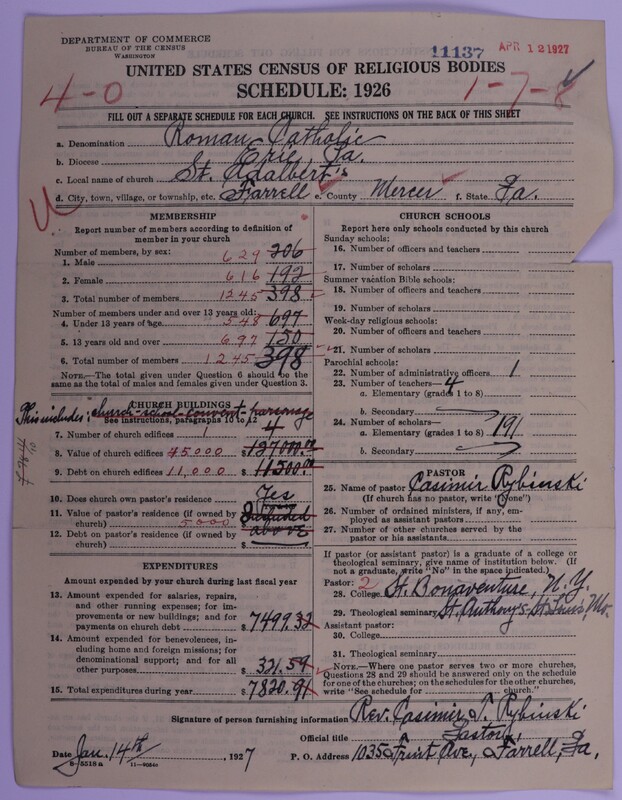 DEPARTMENT OF COMMERCE
BUREAU OF THE CENSUS
WASHINGTON
11137
APR 12 1927
UNITED STATES CENSUS OF RELIGIOUS BODIES
SCHEDULE: 1926
4-0
1-7-8
FILL OUT A SEPARATE SCHEDULE FOR EACH CHURCH. SEE INSTRUCTIONS ON THE BACK OF THIS SHEET
a. Denomination Roman Catholic
b. Diocese Erie, Pa.
c. Local name of church St. Adalbert's
d. City, town, village, or township, etc. Farrell e. County Mercer f. State Pa.
MEMBERSHIP
Report number of members according to definition of member in your church
Number of members, by sex:
1. Male 629 206
2. Female 616 192
3. Total number of members 1245 398
Number of members under and over 13 years old:
4. Under 13 years of age 548 697
5. 13 years old and over 697 150
6. Total number of members 1245 398
NOTE.—The total given under Question 6 should be the
same as the total of males and females given under Question 3.
CHURCH BUILDINGS
This includes: church-school-convent + parsonage
See instructions, paragraphs 10 to 12
7. Number of church edifices 1 4
8. Value of church edifices 45000 $ 127000.00
9. Debt on church edifices 11,000 $ 11500.00
10. Does church own pastor's residence Yes
11. Value of pastor's residence (if owned by
church) 5000 $
12. Debt on pastor's residence (if owned by
church) $ above
EXPENDITURES
Amount expended by your church during last fiscal year
13. Amount expended for salaries, repairs,
and other running expenses; for im-
provements or new buildings; and for
payments on church debt $ 7499.32
14. Amount expended for benevolences, in-
cluding home and foreign missions; for
denominational support; and for all
other purposes $ 321.59
15. Total expenditures during year $ 7820.91
CHURCH SCHOOLS
Report here only schools conducted by this church
Sunday schools:
16. Number of officers and teachers
17. Number of scholars
Summer vacation Bible schools:
18. Number of officers and teachers
19. Number of scholars
Week-day religious schools:
20. Number of officers and teachers
21. Number of scholars
Parochial schools:
22. Number of administrative officers 1
23. Number of teachers— 4
a. Elementary (grades 1 to 8)
b. Secondary
24. Number of scholars—
a. Elementary (grades 1 to 8) 191
b. Secondary
PASTOR
25. Name of pastor Casimir Rybinski
(If church has no pastor, write "None")
26. Number of ordained ministers, if any, em-
ployed as assistant pastors
27. Number of other churches served by the
pastor or his assistants
If pastor (or assistant pastor) is a graduate of a college or
theological seminary, give name of institution below. (If
not a graduate, write "No" in the space indicated.)
Pastor: 2
28. College St. Bonaventure, N.Y.
29. Theological seminary St. Anthony's St. Louis, Mo.
Assistant pastor:
30. College
31. Theological seminary
NOTE.—Where one pastor serves two or more churches,
Questions 28 and 29 should be answered only on the schedule
for one of the churches; on the schedules for the other churches,
write "See schedule for church."
Signature of person furnishing information Rev. Casimir T. Rybinski
Official title Pastor
Date Jan. 14th, 1927
P. O. Address 1035 Fruit Ave, Farrell, Pa.
8-5518a